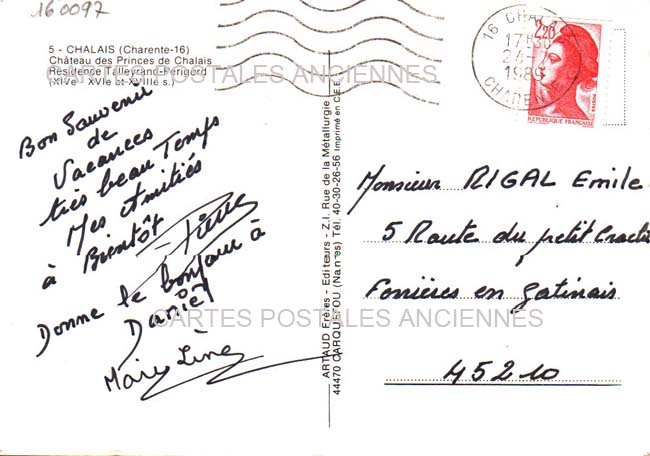 160097
5 - CHALAIS (Charente-16)
Château des Princes de Chalais
Résidence Talleyrand-Périgord
(XIVe - XVIe et XVIIIe s.)
CARTES POSTALES ANCIENNES
Bon Souvenir
de
Vacances
très beau Temps
Mes Amitiés
à Bientôt
Pierre
Donne le bonjour à
Daniel
Marie Line
CARTES POSTALES ANCIENNES
ARTAUD Frères - Editeurs - Z.I. Rue de la Métallurgie
44470 CARQUEFOU (Nantes) Tél. 40-30-26-56 Imprimé en C.E.E.
16 CHALAIS
17H30
1989
CHARENTE
2,20
POSTES
REPUBLIQUE FRANÇAISE
Monsieur RIGAL Emile
5 Route du petit
Ferrières en Gatinais
45210